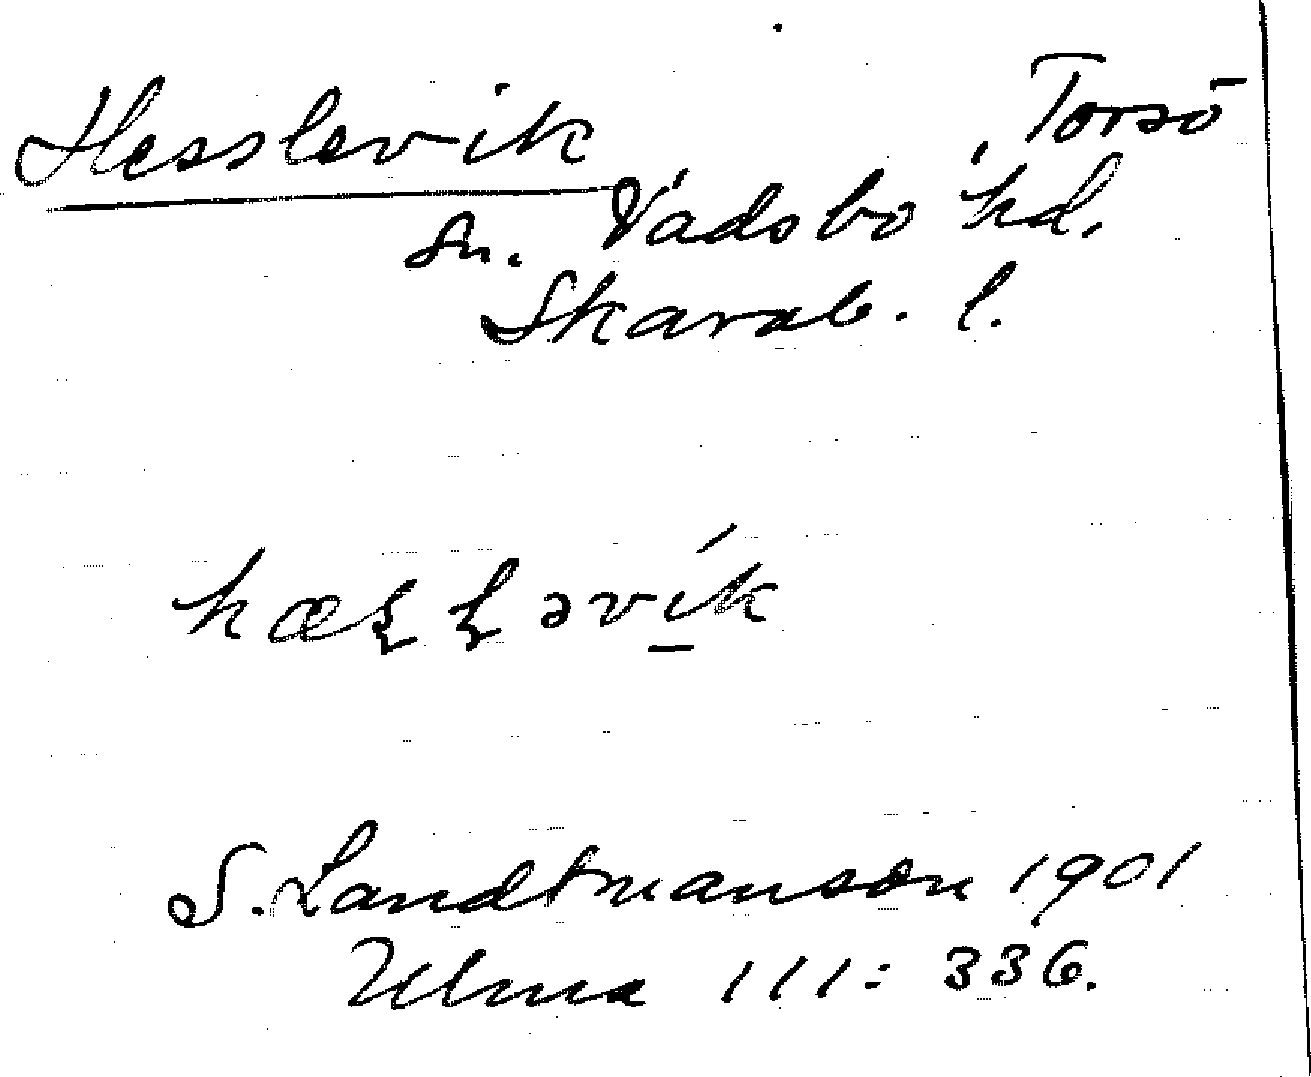 Hesslevik Torsö
sn. Vadsbo hd.
Skarab. l.
hæꞩꞩəvik
S. Landtmanson 1901
Ulma 111: 336.